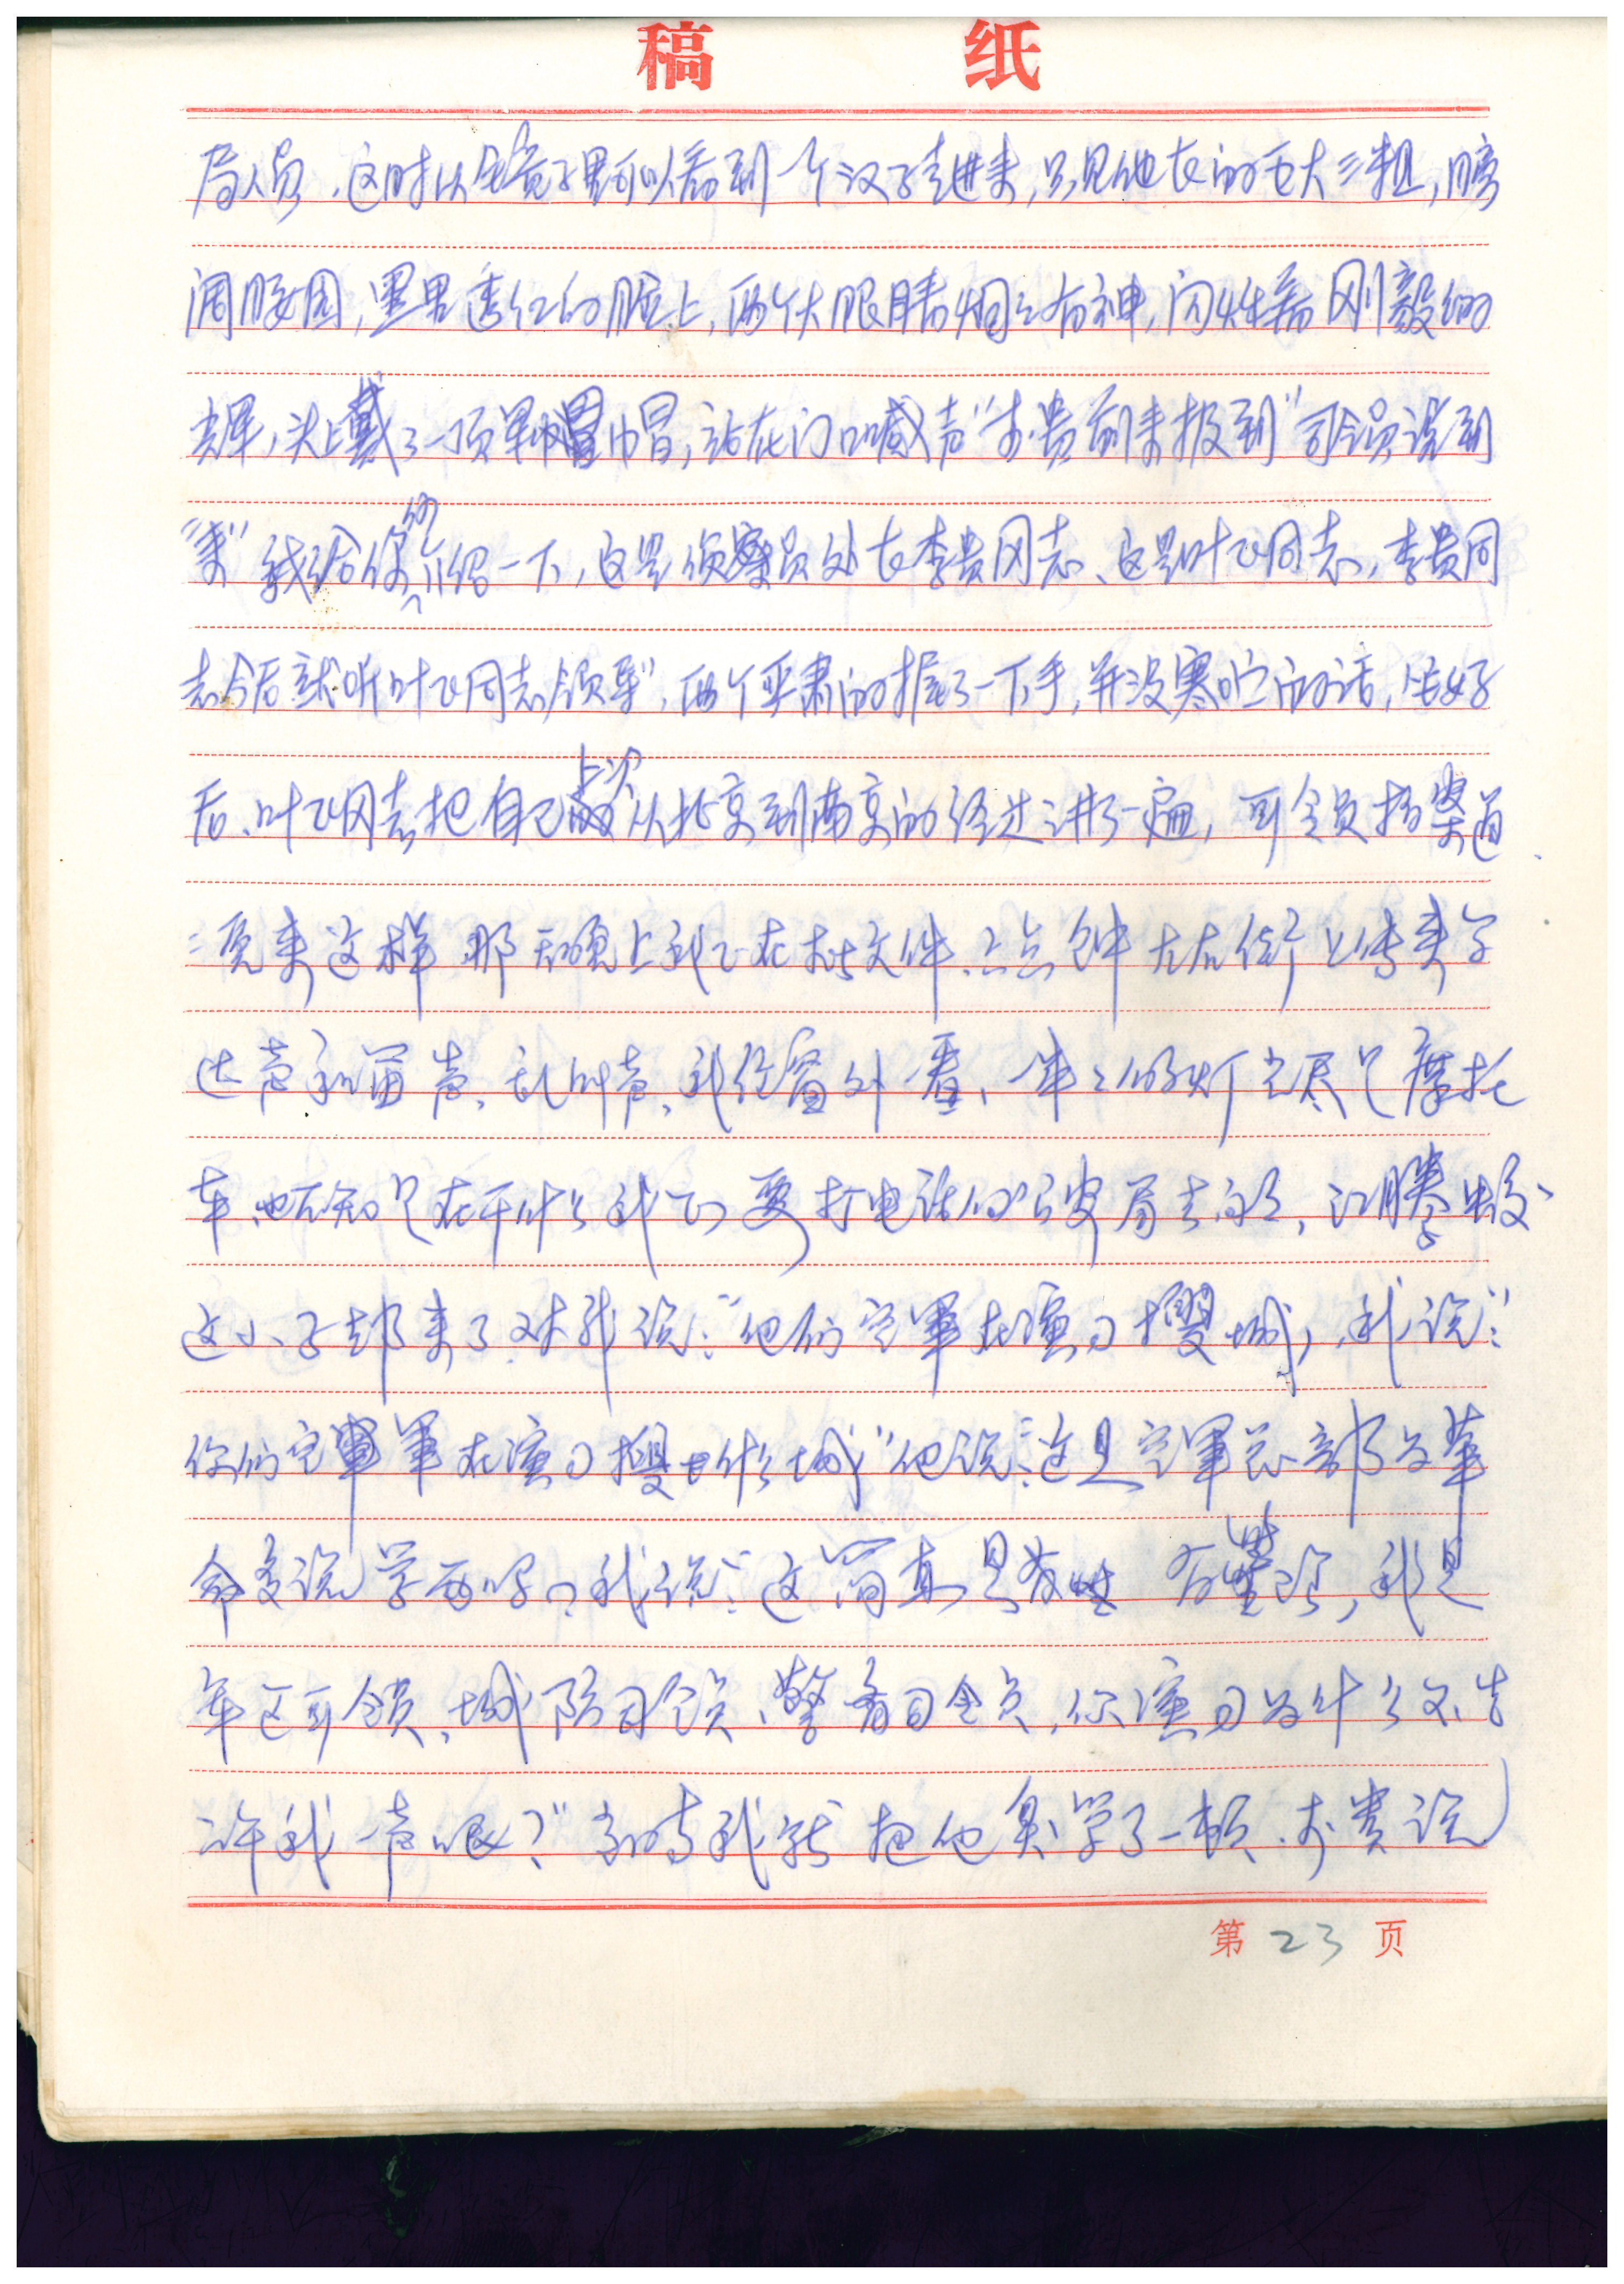 稿 纸
局人员、这时从窗子里可以看到一个汉子走进来,只见他长的五大三粗,膀
阔腰圆,黑里透红的脸上,两个大眼睛炯々有神,闪烁着刚毅的
光辉,头上戴了一顶军帽,站在门口喊声“李贵前来报到”司令员说到
“来”我给你们介绍一下,这是侦察员处长李贵同志、这是叶飞同志,李贵同
志今后就听叶飞同志领导”,两个严肃的握了一下手,并没寒喧的话,坐好
后、叶飞同志把自己上次从北京到南京的经过讲了一遍,司令员拍案道
:原来这样 那天晚上我正在批文件、六点钟左右街上传来
达声和笛声、乱叫声、我往窗外一看、一串々的灯光尽是摩托
车、也不知是在干什么我正要打电话给公安局去问,江腾蛟
这小子却来了对我说:“他们空军在演习攫城,我说:“
你们空军在演习攫什么城”他说:“这是空军总部为革
命多说学两 我说:“这简直是 我是
军区司令员、城防司令员、警备司令员,你演习为什么不告
许我一声呢?”当时我就把他臭学了一顿、李贵说
第 23 页